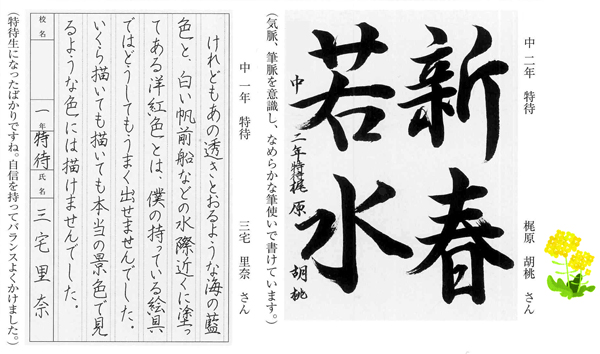 中二年　特待
梶原　胡桃　さん
新春
若水
中二年特待　梶原　胡桃
（気脈、筆脈を意識し、なめらかな筆使いで書けています。）
中一年　特待
三宅　里奈　さん
けれどもあの透きとおるような海の藍
色と、白い帆前船などの水際近くに塗っ
てある洋紅色とは、僕の持っている絵具
ではどうしてもうまく出せませんでした。
いくら描いても描いても本当の景色で見
るような色には描けませんでした。
校名　一年　特待　氏名　三宅里奈
（特待生になったばかりですね。自信を持ってバランスよくかけました。）